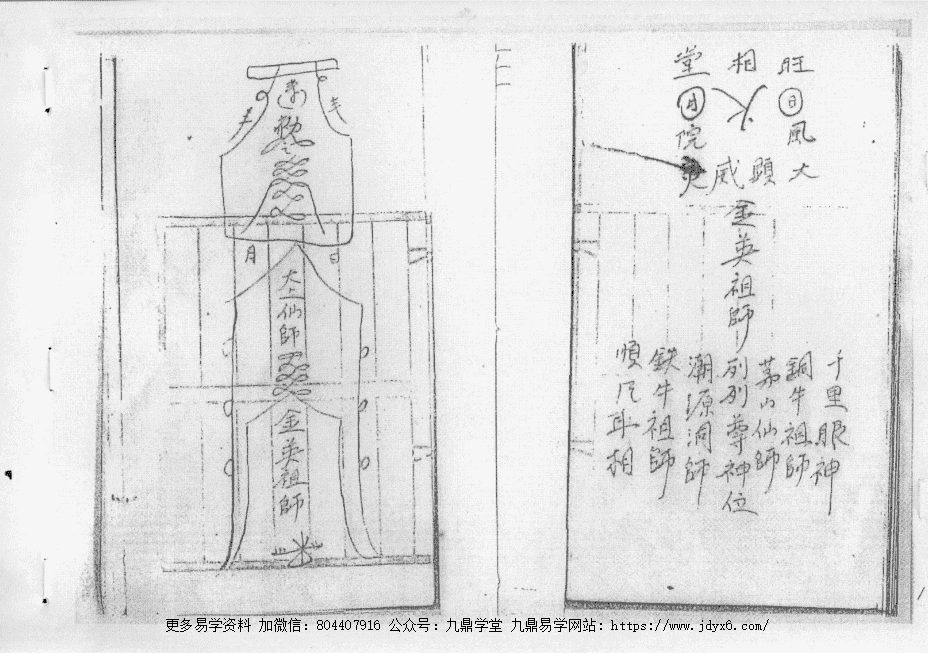 旺相堂
日火月
風院
大顯威
千里眼神
銅牛祖師
茅山仙師
金英祖師列列尊神位
潮源洞師
鉄牛祖師
順风耳相
日月
太上仙師
金英祖師
更多易学资料 加微信：804407916 公众号：九鼎学堂 九鼎易学网站：https://www.jdyx6.com/